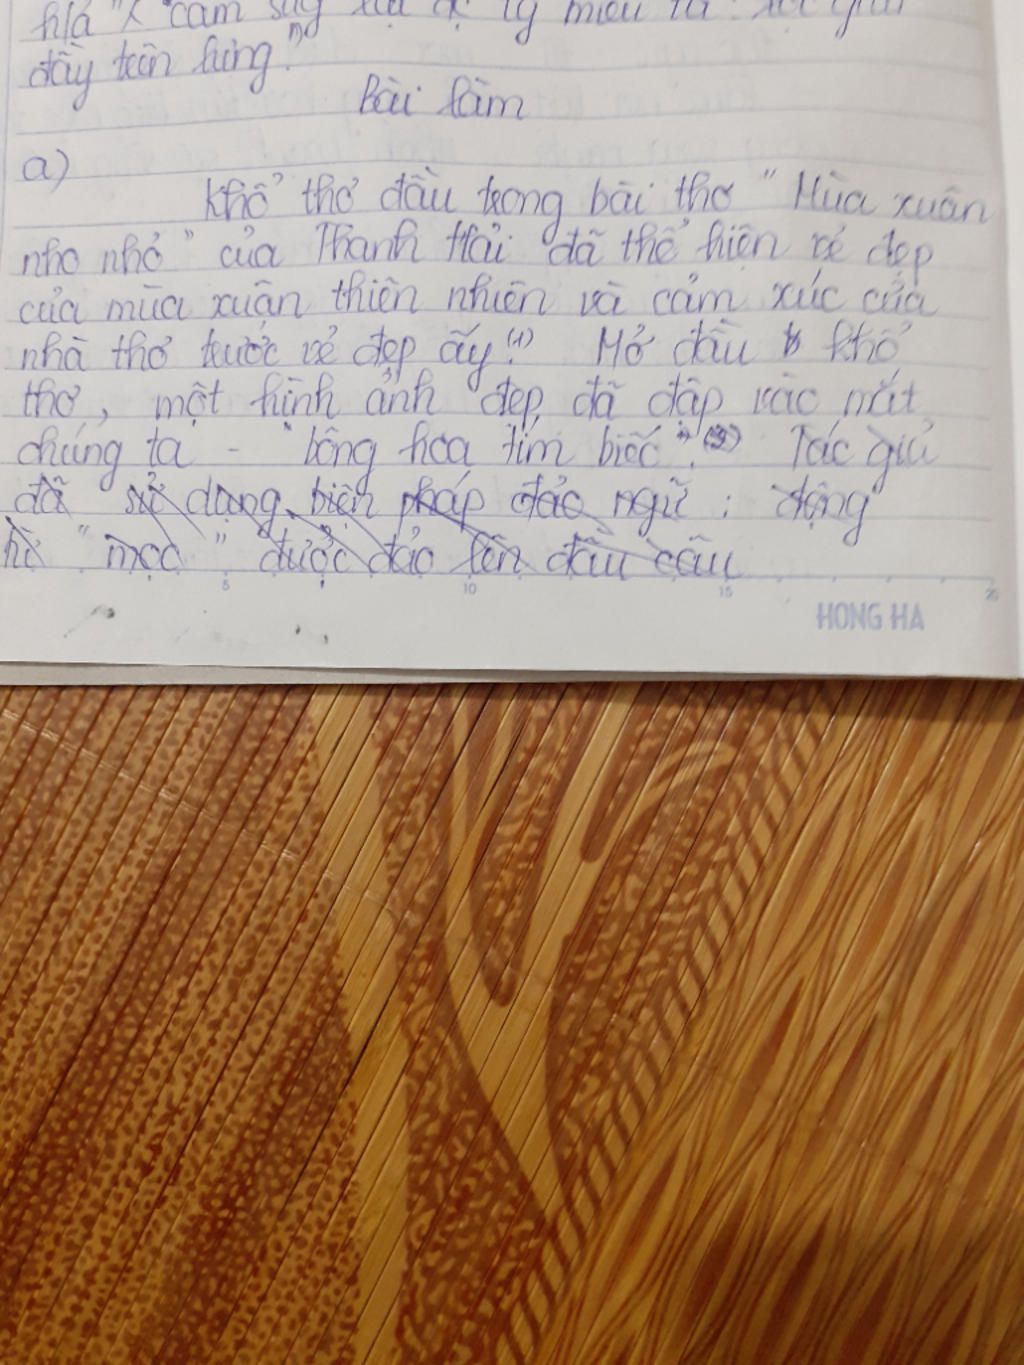 đầy trên lưng."
Bài làm
a)
Khổ thơ đầu trong bài thơ "Mùa xuân
nho nhỏ" của Thanh Hải đã thể hiện vẻ đẹp
của mùa xuân thiên nhiên và cảm xúc của
nhà thơ trước vẻ đẹp ấy.(1) Mở đầu khổ
thơ, một hình ảnh đẹp đã đập vào mắt
chúng ta - "bông hoa tím biếc". Tác giả
đã sử dụng biện pháp đảo ngữ: động
từ "mọc" được đảo lên đầu câu
5 10 15 20
HONG HA